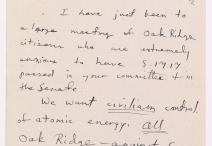 I have just been to
a large meeting of Oak Ridge
citizens who are extremely
anxious to have S.1717
passed in your committee & in
the Senate.
We want civilian control
of atomic energy. all
Oak Ridge - against